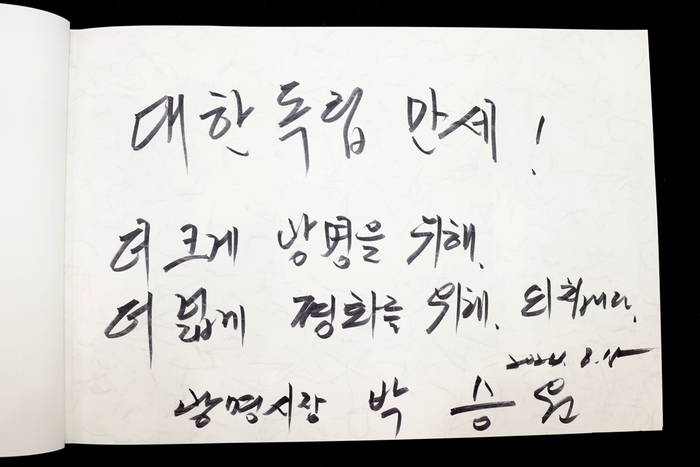 대한독립 만세!
더 크게 광명을 위해,
더 넓게 평화를 위해,
2024. 8. 15
광명시장 박승원